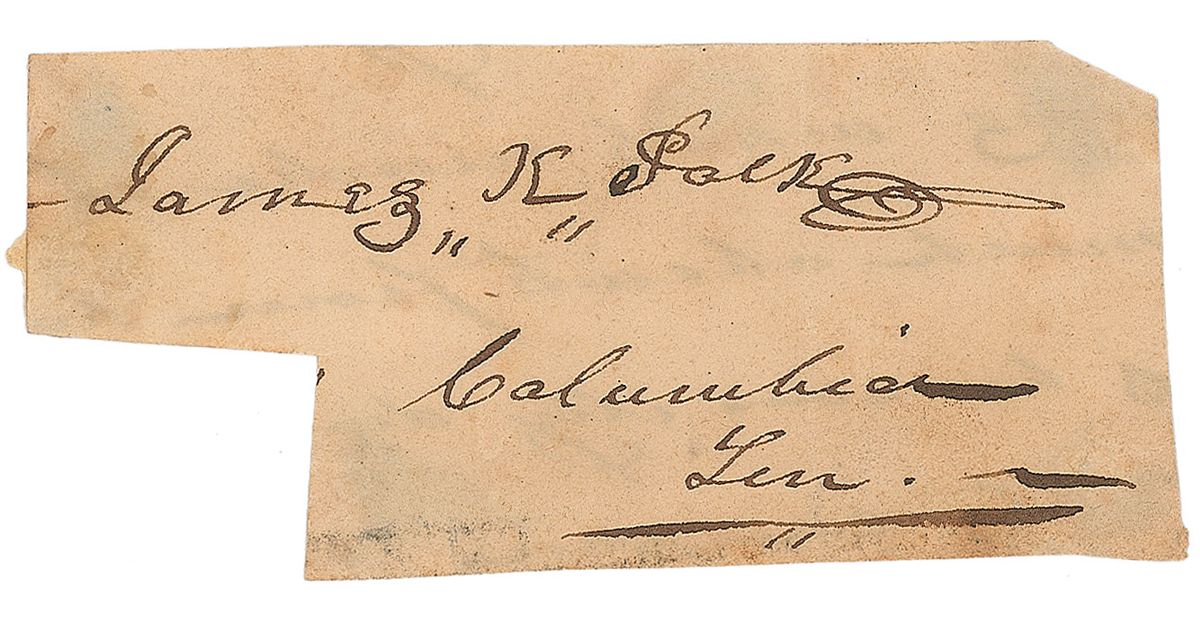 James „ K „ Polk
Columbia
Ten.
„